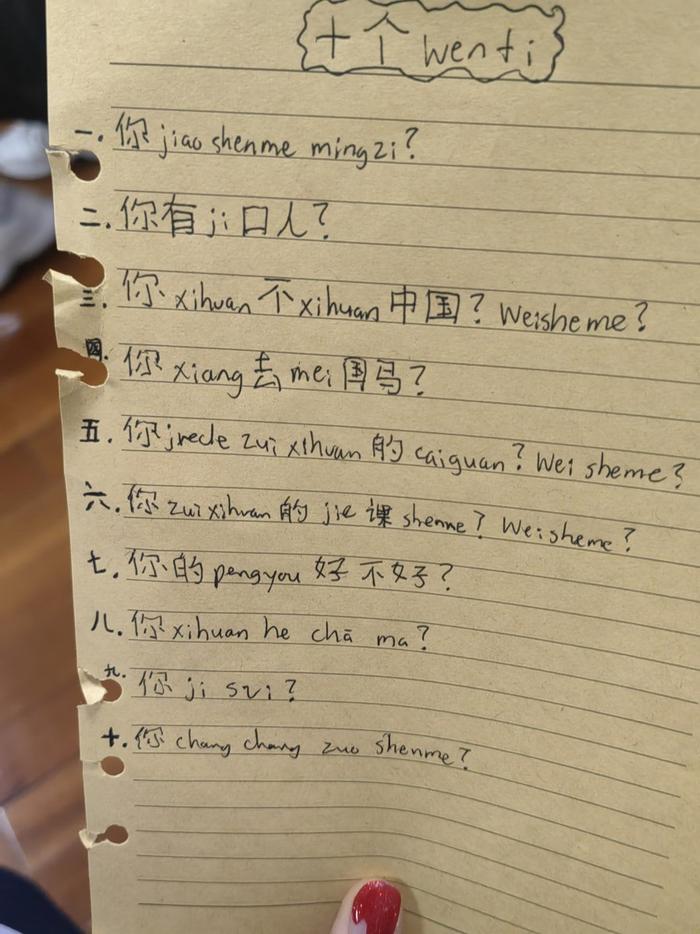 十个 wenti
一. 你 jiao shenme mingzi?
二. 你有 ji 口人?
三. 你 xihuan 不 xihuan 中国? Weisheme?
四. 你 xiang 去 mei 国马?
五. 你 jvede zui xihuan 的 caiguan? Wei sheme?
六. 你 zui xihuan 的 jie 课 shenme? Weisheme?
七. 你的 pengyou 好不好?
八. 你 xihuan he chā ma?
九. 你 ji svi?
十. 你 chang chang zuo shenme?